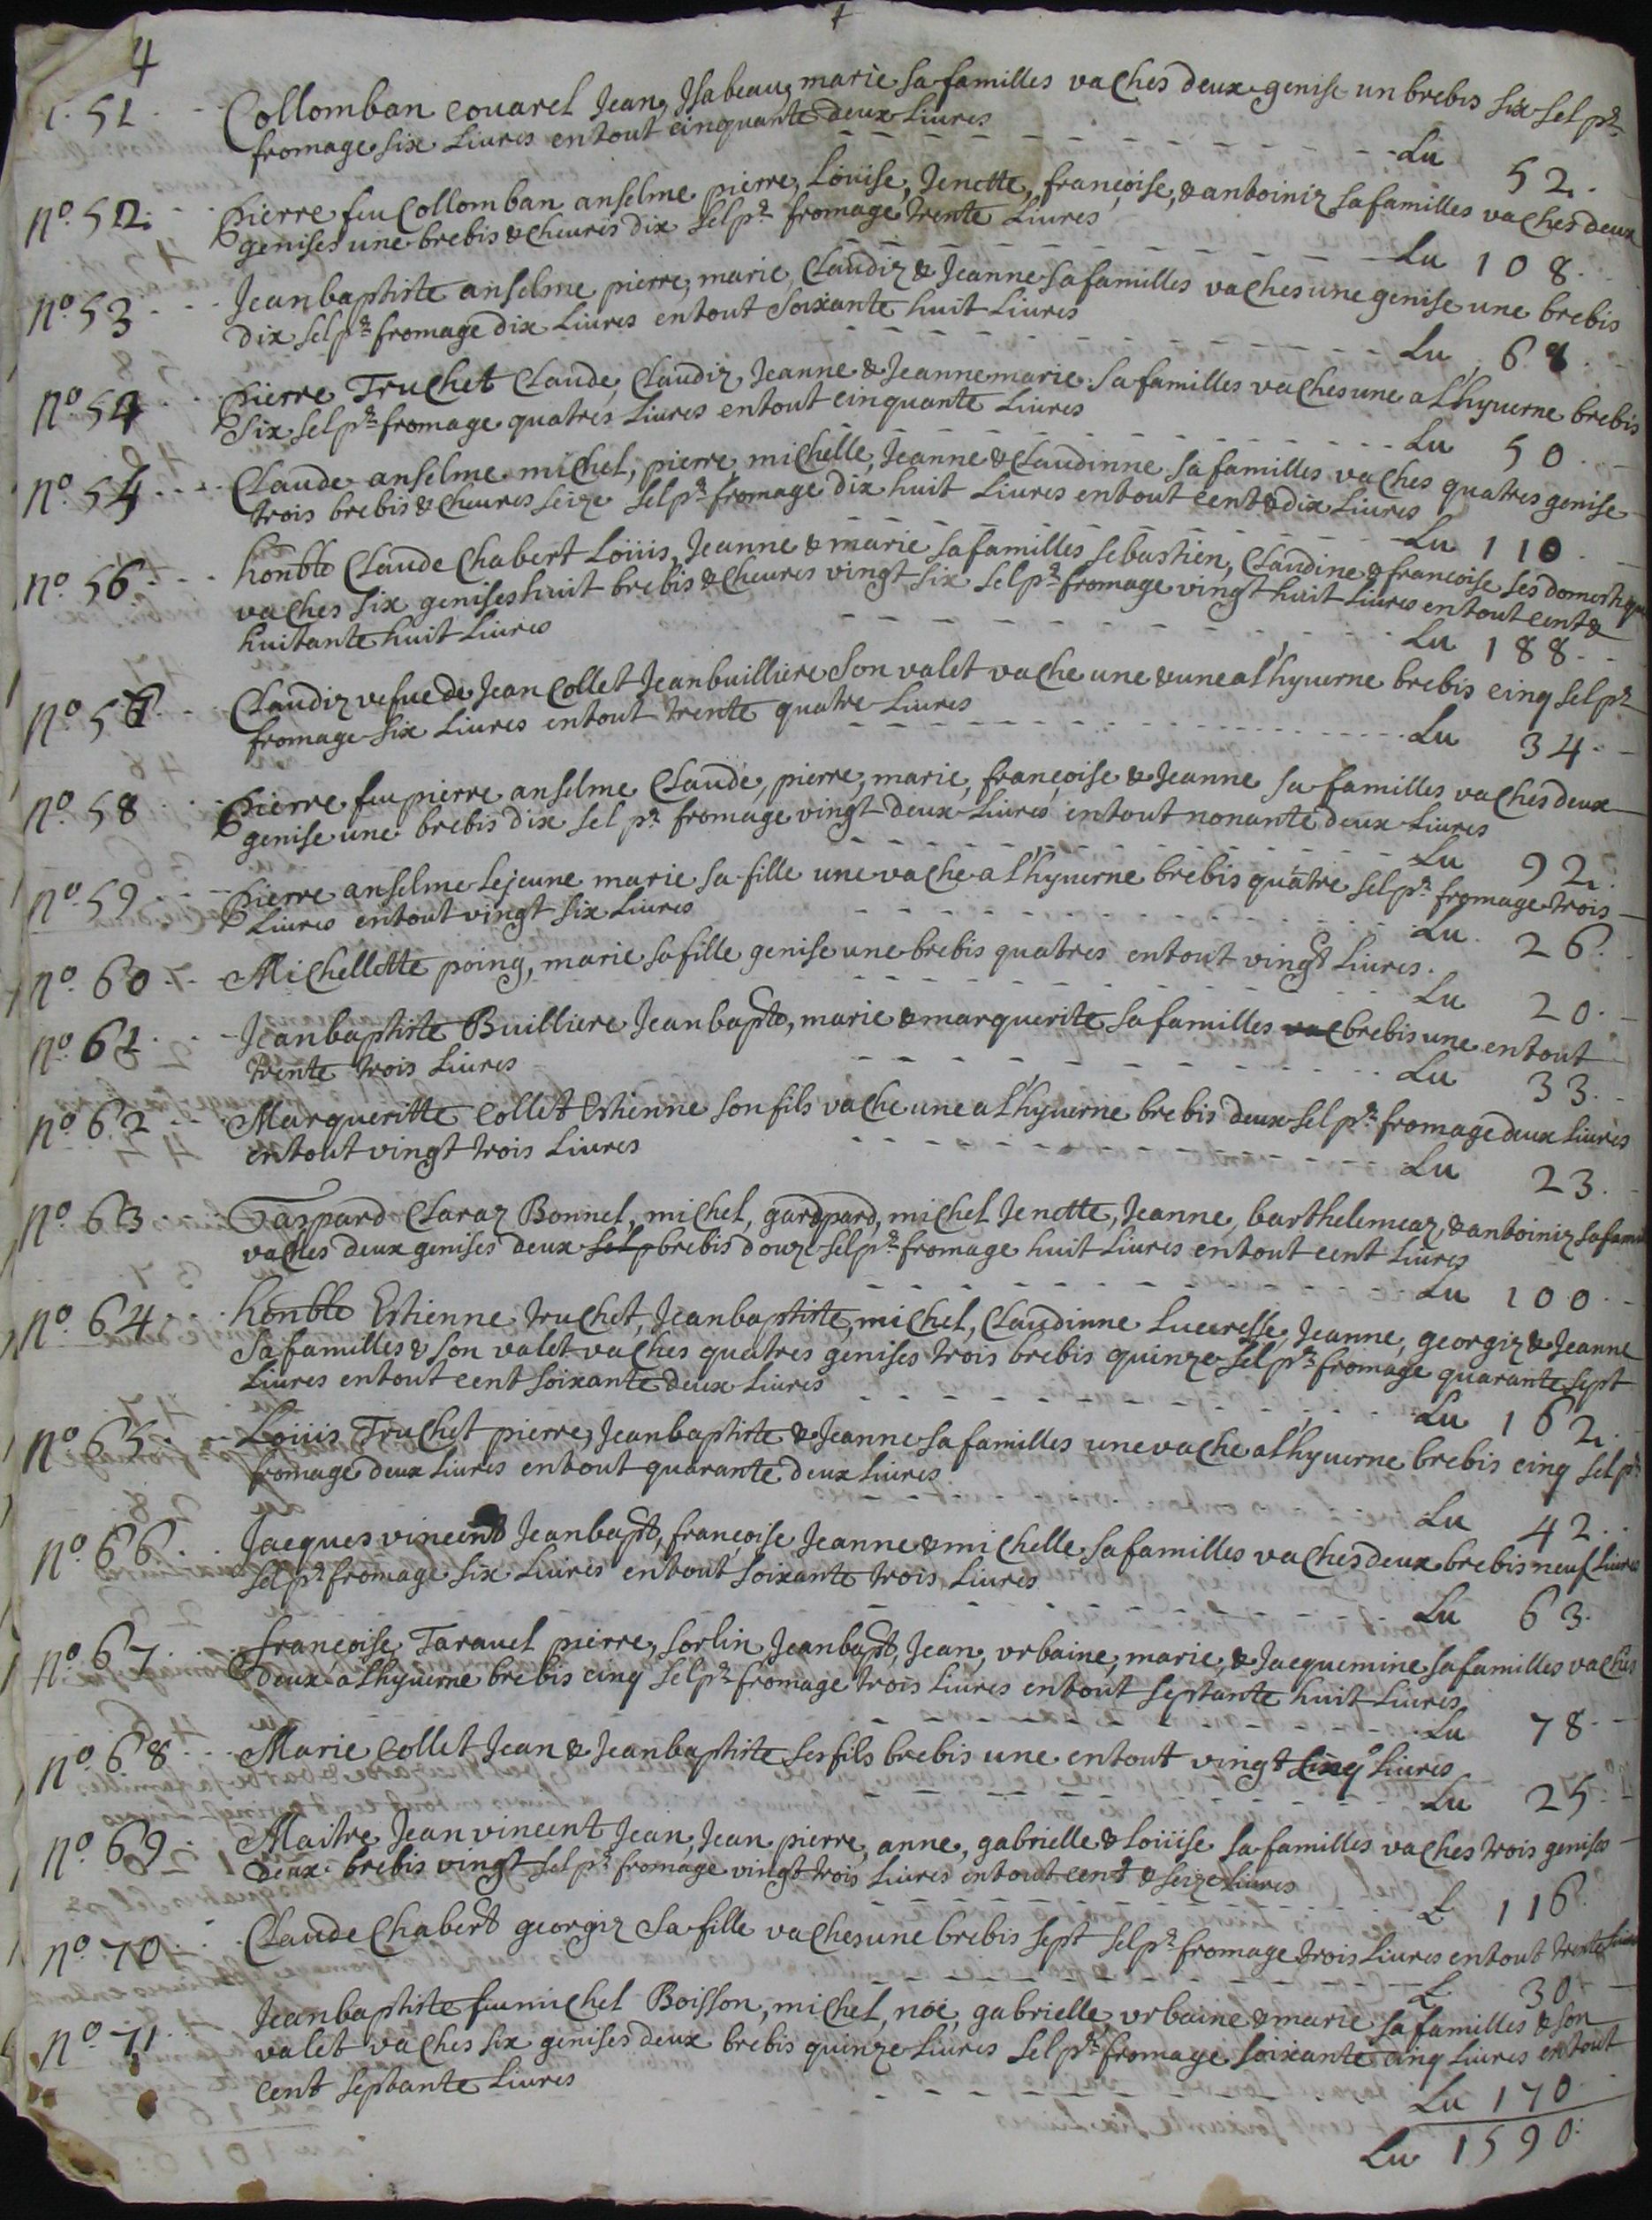 4
51. Collomban Couarel Jean, Isabeau, marie sa familles vaches deux genise un brebis six sel pr
fromage six Liures en tout cinquante deux Liures
Lu 52.
No. 52. Pierre feu Collomban anselme pierre, Loüise, Jenette, françoise, & antoiniz sa familles vaches deux
genises une brebis & cheures dix sel pr fromage trente Liures
Lu 108.
No. 53 Jean baptiste anselme pierre, marie, Claudiz & Jeanne sa familles vaches une genise une brebis
dix sel pr fromage dix Liures en tout Soixante huit Liures
Lu 68.
No. 54 Pierre Truchet Claude, Claudiz, Jeanne & Jeanne marie sa familles vaches une a L'hyuerne brebis
Six sel pr fromage quatres Liures en tout cinquante Liures
Lu 50.
No. 54 Claude anselme michel, pierre, michelle, Jeanne & Claudinne sa familles vaches quatres genise
trois brebis & cheures seize sel pr fromage dix huit Liures en tout cent & dix Liures
Lu 110.
No. 56 honble Claude Chabert Loüis, Jeanne & marie sa familles sebastien, Claudine & françoise ses domestiqu
vaches six genises huit brebis & cheures vingt six sel pr fromage vingt huit Liures en tout cent &
huitante huit Liures
Lu 188.
No. 57 Claudiz vefue de Jean Collet Jean buillierе Son valet vache une & une a l'hyuerne brebis cinq sel pr
fromage six Liures en tout trente quatre Liures
Lu 34.
No. 58 Pierre feu pierre anselme Claude, pierre, marie, françoise & Jeanne sa familles vaches deux
genise une brebis dix sel pr fromage vingt deux Liures en tout nonante deux Liures
Lu 92.
No. 59 Pierre anselme Le jeune marie sa fille une vache a L'hyuerne brebis quatre sel pr fromage trois
Liures en tout vingt six Liures
Lu 26.
No. 60 Michellette poing, marie sa fille genise une brebis quatres en tout vingt Liures.
Lu 20.
No. 61 Jean baptiste Builliere Jean bapte, marie & marguerite sa familles vac brebis une en tout
trente trois Liures
Lu 33.
No. 62 Margueritte Collet Estienne son fils vache une a l'hyuerne brebis deux sel pr fromage deux Liures
en tout vingt trois Liures
Lu 23.
No. 63 Gaspard Claraz Bonnel, michel, gardpard, michel Jenette, Jeanne, barthelemeaz, & antoiniz sa fami
vaches deux genises deux selp brebis douze sel pr fromage huit Liures en tout cent Liures
Lu 100.
No. 64 honble Estienne truchet, Jean baptiste, michel, Claudinne Lucresse, Jeanne, georgiz & Jeanne
Sa familles & son valet vaches quatres genises trois brebis quinze sel pr fromage quarante sept
Liures en tout cent soixante deux Liures
Lu 162.
No. 65 Loüis Truchet pierre, Jean baptiste & Jeanne sa familles une vache a L'hyuerne brebis cinq sel pr
fromage deux Liures en tout quarante deux Liures
Lu 42.
No. 66 Jacques vincent Jean bapt, françoise Jeanne & michelle sa familles vaches deux brebis neuf Liures
Sel pr fromage six Liures en tout soixante trois Liures
Lu 63.
No. 67 françoise Tarauel pierre, sorlin, Jean bapt, Jean, vrbaine, marie, & Jacquemine sa familles vaches
Deux a Lhyuerne brebis cinq sel pr fromage trois Liures en tout septante huit Liures
Lu 78
No. 68 Marie Collet Jean & Jean baptiste ses fils brebis une en tout vingt cinq Liures
Lu 25.
No. 69 Maitre Jean vincent Jean, Jean pierre, anne, gabrielle & Loüise sa familles vaches trois genises
Deux brebis vingt sel pr fromage vingt trois Liures en tout cent & seize Liures
L 116.
No. 70 Claude Chabert georgiz sa fille vaches une brebis sept sel pr fromage trois Liures en tout trente Liures
L 30.
No. 71. Jean baptiste feu michel Boisson, michel, noë, gabrielle, vrbaine & marie sa familles & son
valet vaches six genises deux brebis quinze Liures sel pr fromage soixante cinq Liures en tout
Cent septante Liures
Lu 170
Lu 1590.